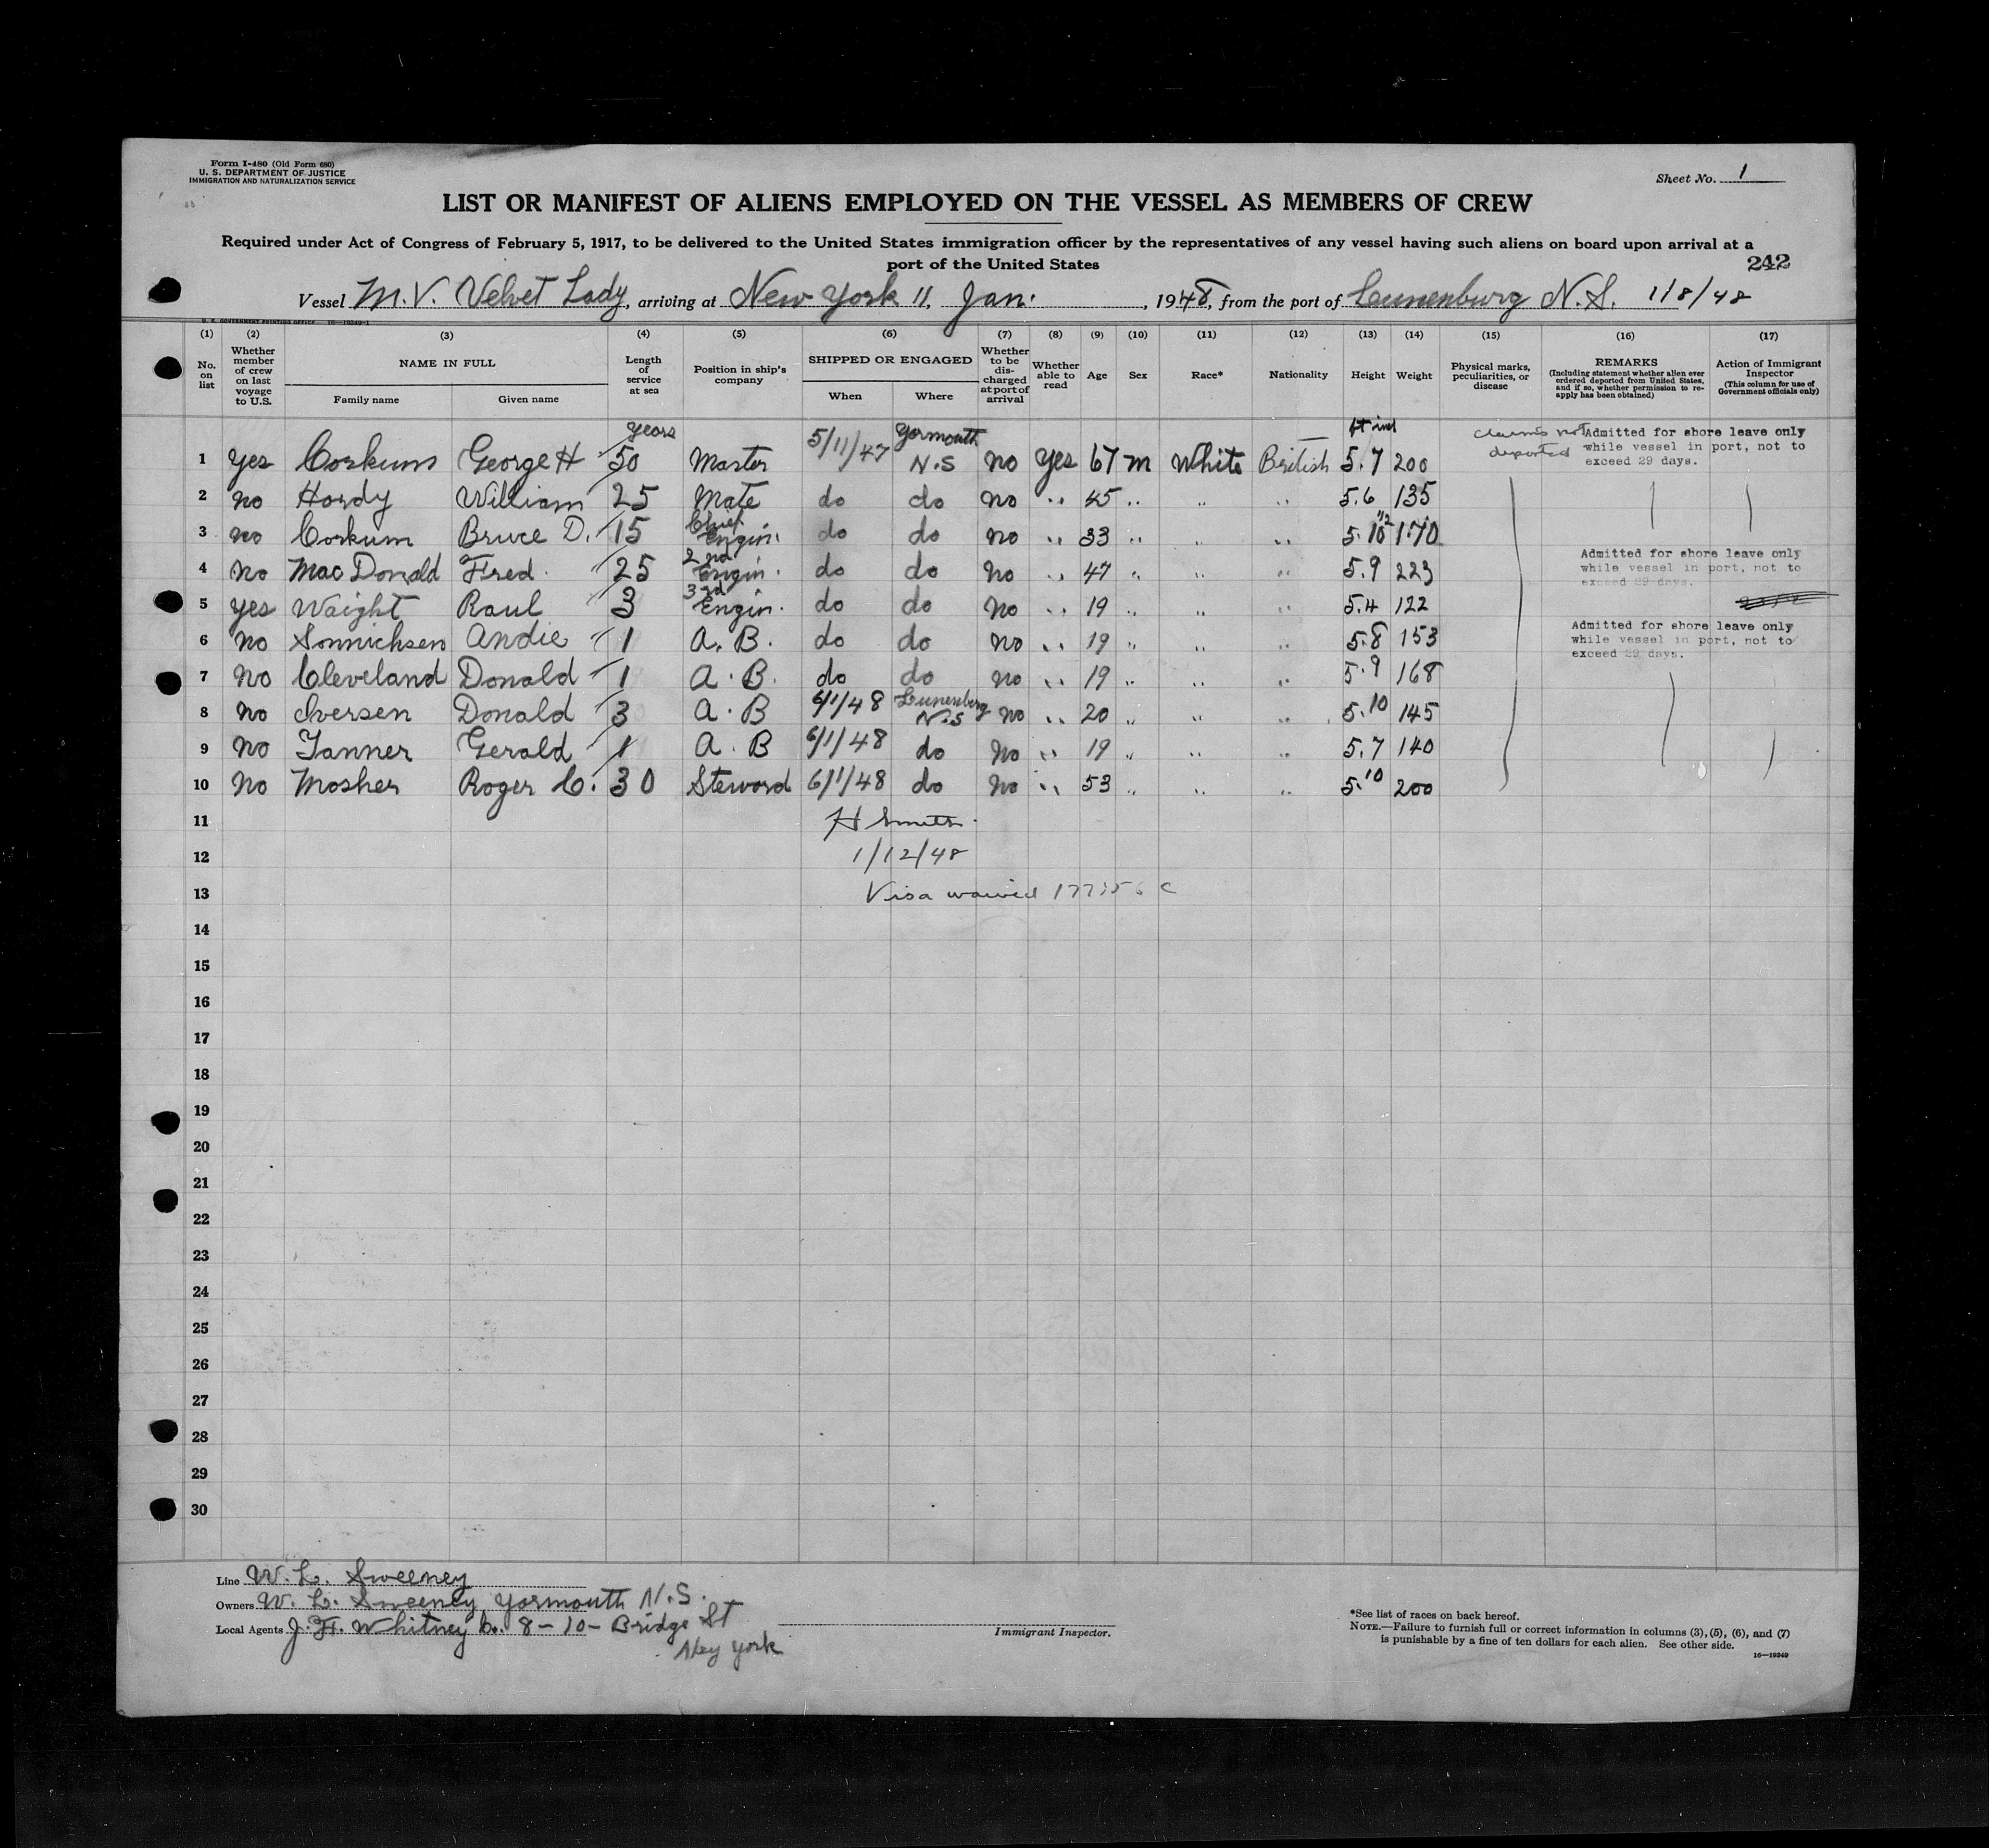 Form I-480 (Old Form 680)
U. S. DEPARTMENT OF JUSTICE
IMMIGRATION AND NATURALIZATION SERVICE
Sheet No. 1
LIST OR MANIFEST OF ALIENS EMPLOYED ON THE VESSEL AS MEMBERS OF CREW
Required under Act of Congress of February 5, 1917, to be delivered to the United States immigration officer by the representatives of any vessel having such aliens on board upon arrival at a
port of the United States
242
Vessel M.V. Velvet Lady, arriving at New York 11, Jan., 1948, from the port of Lunenburg N.S. 1/8/48
U. S. GOVERNMENT PRINTING OFFICE 16-19349-1
(1) (2) (3) (4) (5) (6) (7) (8) (9) (10) (11) (12) (13) (14) (15) (16) (17)
No. on list Whether member of crew on last voyage to U.S. NAME IN FULL Family name Given name Length of service at sea Position in ship's company SHIPPED OR ENGAGED When Where Whether to be discharged at port of arrival Whether able to read Age Sex Race* Nationality Height Weight Physical marks, peculiarities, or disease REMARKS (Including statement whether alien ever ordered deported from United States, and if so, whether permission to reapply has been obtained) Action of Immigrant Inspector (This column for use of Government officials only)
years ft ins
1 Yes Corkum George H 50 Master 5/11/47 Yarmouth N.S no Yes 67 m White British 5.7 200 claims not deported Admitted for shore leave only while vessel in port, not to exceed 29 days.
2 no Hardy William 25 Mate do do no " 45 " " " 5.6 135
3 no Corkum Bruce D. 15 Chief Engin. do do no " 33 " " " 5.10 1/2 170
4 no Mac Donald Fred 25 2nd Engin. do do no " 47 " " " 5.9 223 Admitted for shore leave only while vessel in port, not to exceed 29 days.
5 yes Waight Raul 3 3rd Engin. do do no " 19 " " " 5.4 122
6 no Sonnichsen Andie 1 A. B. do do no " 19 " " " 5.8 153 Admitted for shore leave only while vessel in port, not to exceed 29 days.
7 no Cleveland Donald 1 A. B. do do no " 19 " " " 5.9 168
8 no Iversen Donald 3 A. B 6/1/48 Lunenburg N.S no " 20 " " " 5.10 145
9 no Tanner Gerald 1 A. B 6/1/48 do no " 19 " " " 5.7 140
10 no Mosher Roger C. 30 Steward 6/1/48 do no " 53 " " " 5.10 200
11 H Smith
12 1/12/48
13 Visa waived
14
15
16
17
18
19
20
21
22
23
24
25
26
27
28
29
30
Line W. L. Sweeney
Owners W. L. Sweeney Yarmouth N.S.
Local Agents J. F. Whitney Co. 8-10- Bridge St
New York
Immigrant Inspector.
*See list of races on back hereof.
NOTE.—Failure to furnish full or correct information in columns (3), (5), (6), and (7)
is punishable by a fine of ten dollars for each alien. See other side.
16—19349